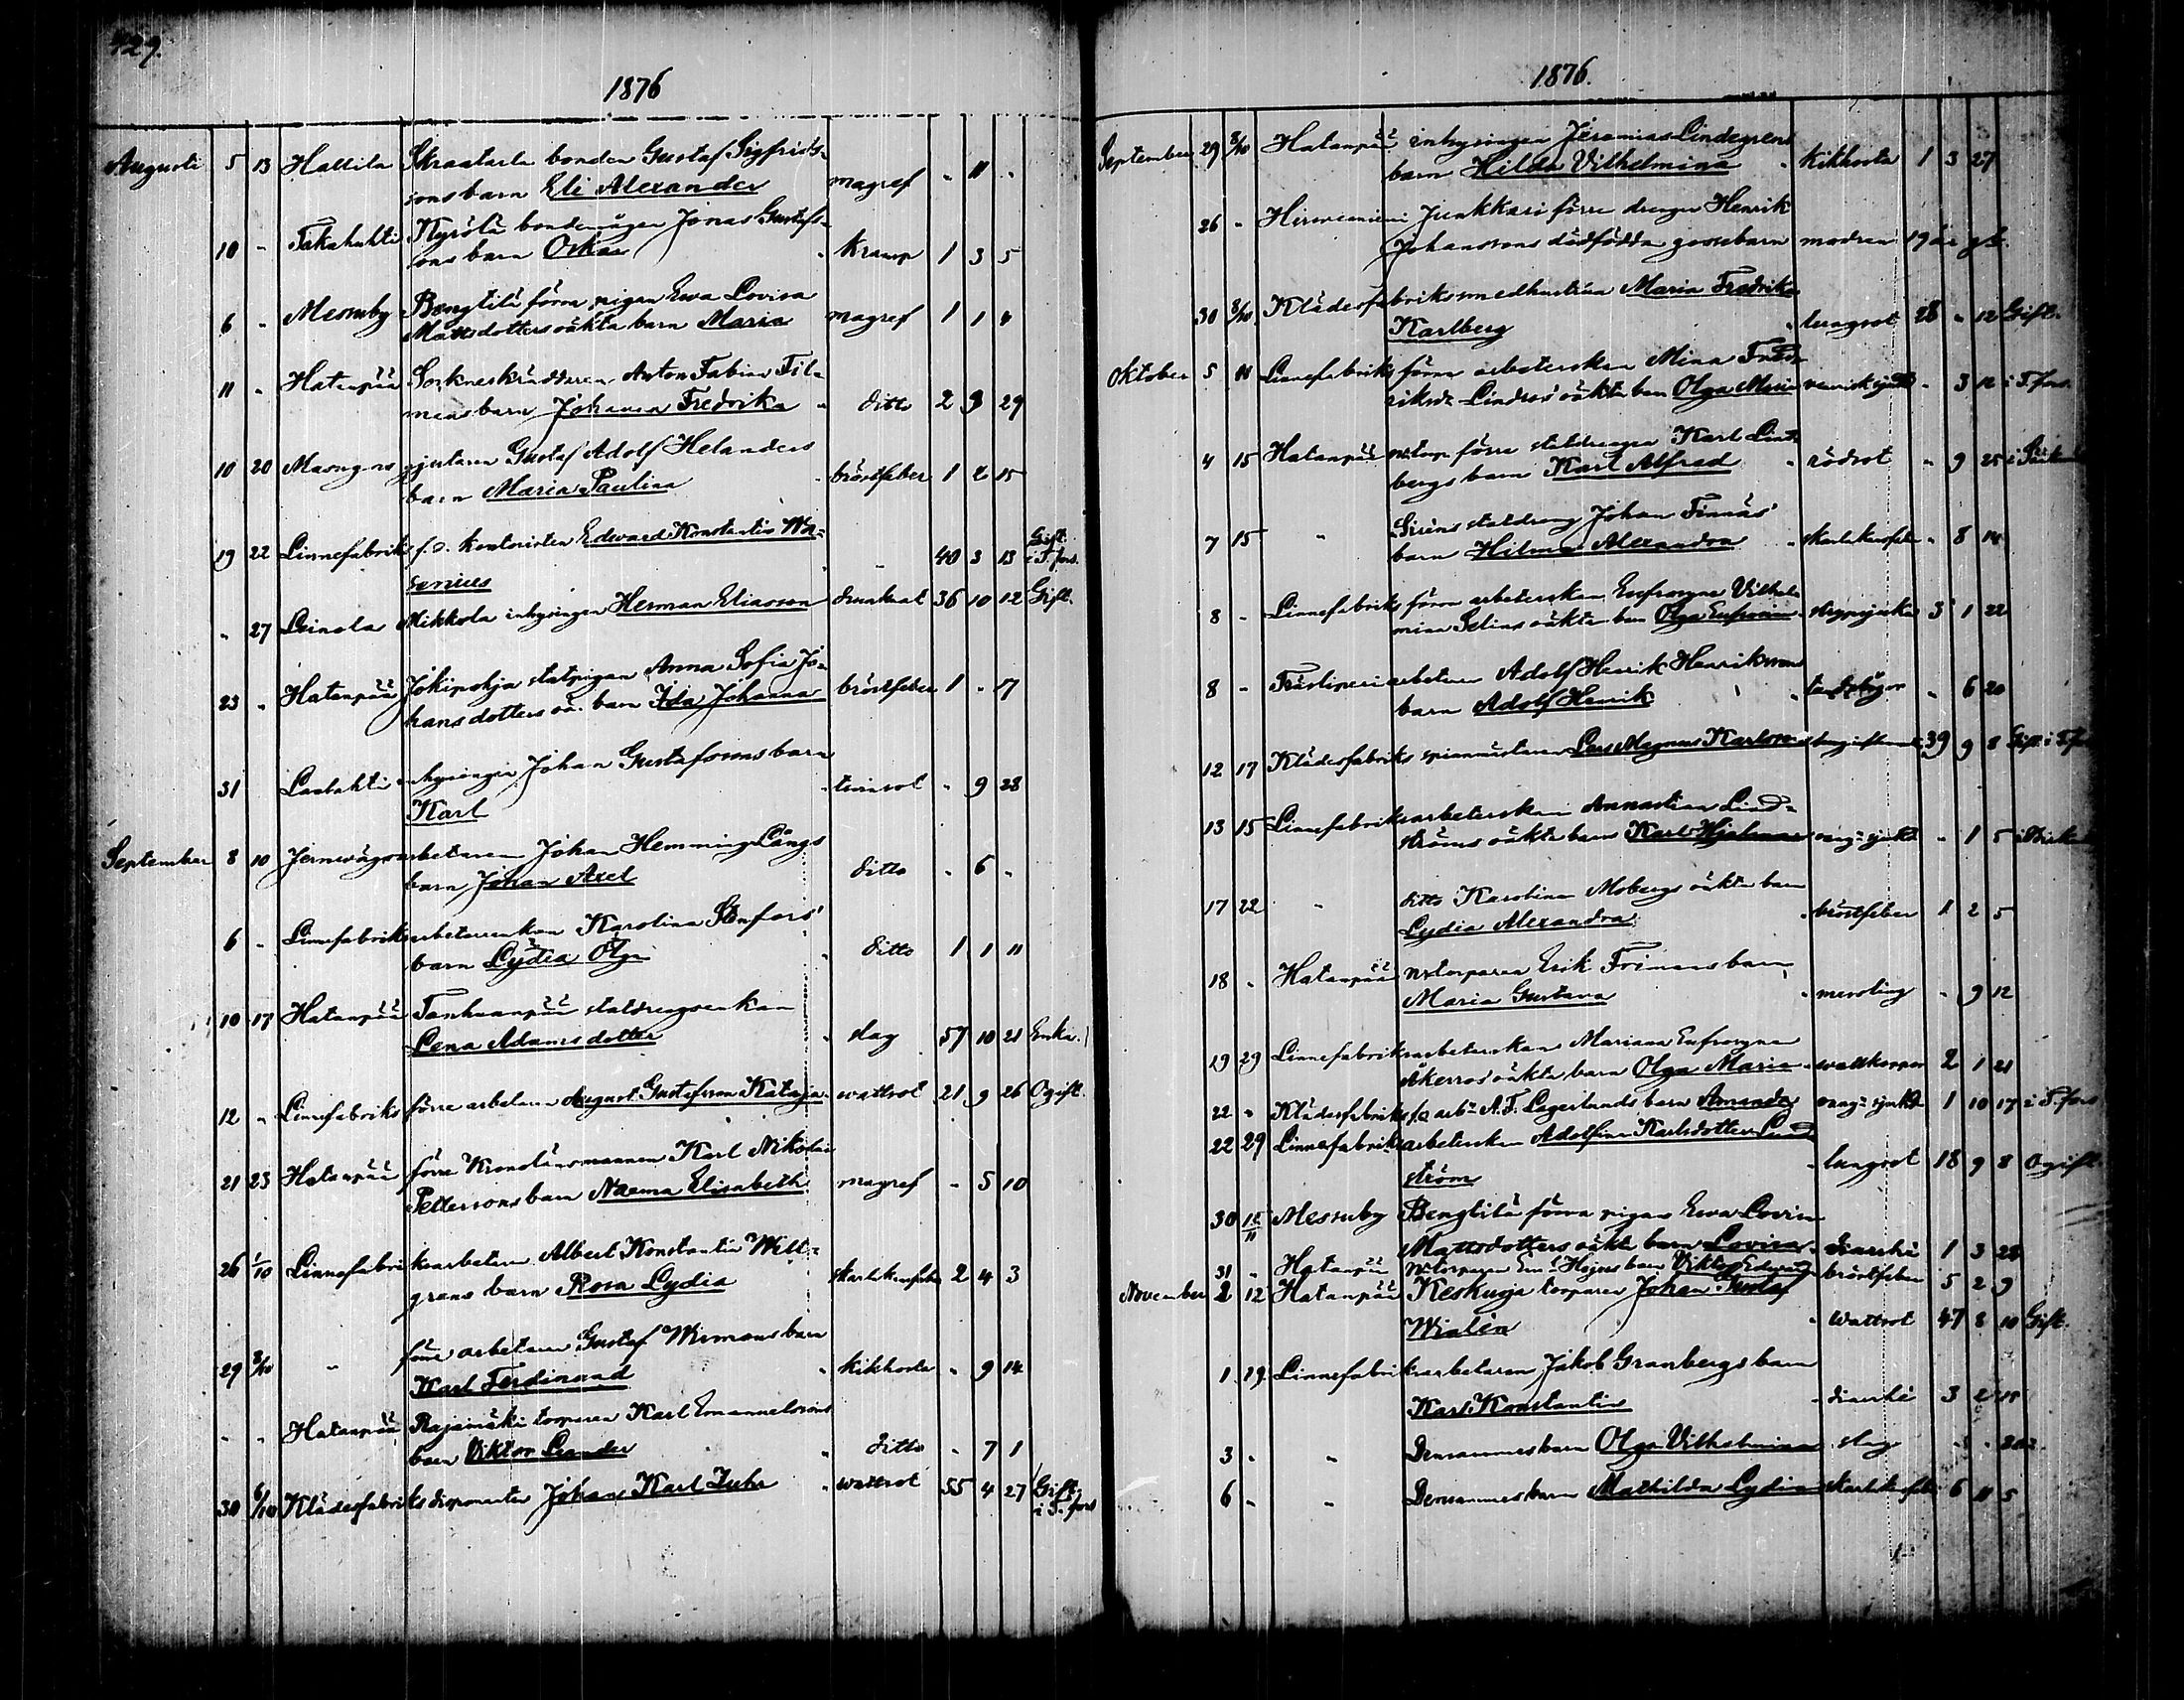 429.
1876
Augusti 5 13 Hallila Skraatarla bonden Gustaf Sigfrids-
sons barn Eli Alexander magref " 11 "
10 " Takahuhti Kyrölä bondemågen Jonas Gustafs-
sons barn Oskar " kramp 1 3 5
6 " Messuby Bengtilä förra pigan Ewa Lovisa
Mattsdotters oäkta barn Maria magref 1 1 4
11 " Hatanpää Sockneskräddaren Anton Fabian Fil-
mans barn Johanna Fredrika " ditto 2 3 29
10 20 Masugns gjutaren Gustaf Adolf Helanders
barn Maria Paulina " bröstfeber 1 2 15
19 22 Linnefabriks f.d. kontoristen Edward Konstantin Wa-
senius " 40 3 13 Gift. i T.fors.
" 27 Leinola Mikkola inhysingen Herman Eliasson drunknat 36 10 12 Gift.
23 " Hatanpää Jokipohja statpigan Anna Sofia Jo-
hansdotters oä. barn Ida Johanna bröstfeber 1 " 17
31 Lastahti inhysingen Johan Gustafssons barn
Karl " tvinsot " 9 28
September 8 10 Jernvägsarbetaren Johan Hemming Längs
barn Johan Axel ditto " 6 "
6 " Linnefabriksarbetarenkan Karolina Stenfors'
barn Lydia Olga " ditto 1 1 11
10 17 Hatanpää Tanhuanpää statdrengsenkan
Lena Adamsdotter " slag 57 10 21 Enka.
12 " Linnefabriks förre arbetaren August Gustafsson Kataja " wattsot 21 9 26 Ogift.
21 23 Hatanpää förre Kronolänsmannen Karl Nikolai
Petterssons barn Naema Elisabeth magref " 5 10
26 1/10 Linnefabriksarbetaren Albert Konstantin Wett-
grens barn Rosa Lydia skarlakansfeber 2 4 3
29 8/10 " förre arbetaren Gustaf Wirmans barn
Karl Ferdinand " kikhosta " 9 14
" " Hatanpää Rajamäki torparen Karl Emanuelssons
barn Viktor Leander " ditto " 7 1
30 6/10 Klädesfabriks disponenten Johan Karl Zuhr " wattsot 55 4 27 Gift. i T.fors
1876.
September 29 8/10 Hatanpää inhysingen Jeremias Lindegrens
barn Hilda Vilhelmina " kikhosta 1 3 27
26 " Hirvenniemi Junkkari förre drengen Henrik
Johanssons dödfödda gossebarn modren 19 år gl.
30 8/10 Klädesfabrikssmedhustrun Maria Fredrika
Karlberg " lungsot 28 " 12 Gift.
Oktober 5 Linnefabriks förra arbeterskan Mina Fred-
riksdr Lindros' oäkta barn Olga Maria venerisk sjukd. " 3 12 i T.fors.
4 15 Hatanpää förre statdrengen Karl Lind-
bergs barn Karl Alfred " rödsot " 9 25
7 15 " statdreng Johan Finnäs'
barn Hilma Alexandra " skarlakansfeber " 8 14
8 " Linnefabriks förra arbeterskan Eufrosyne Vilhel-
mina Selins oäkta barn Olga Eufrosine " strypsjuka 3 1 22
8 " Träsliperiarbetaren Adolf Henrik Henrikssons
barn Adolf Henrik " 6 20
12 17 Klädesfabriks spinnmästaren Lars Magnus Karlsson 39 9 8 Gift. i T.fors
13 15 Linnefabriksarbeterskan Annastina Lind-
ströms oäkta barn Karl Hjalmar " 1 5
17 22 " ditto Karolina Mobergs oäkta barn
Lydia Alexandra " bröstfeber 1 2 5
18 " Hatanpää torparen Erik Frimans barn
Maria Gustava " messling " 9 12
19 29 Linnefabriksarbeterskan Mariana Eufrosyne
Åkerros oäkta barn Olga Maria " wattkoppor 2 1 21
22 " Klädesfabriks f.d. arb. A. F. Lagerlunds barn Amanda 1 10 17 i T.fors
22 29 Linnefabriksarbeterskan Adolfina Karlsdotter Lind-
ström " lungsot 18 9 8 Ogift.
30 12/11 Messuby Bengtilä förra pigan Ewa Lovisa
Mattsdotters oäkta barn Lovisa " diarrhé 1 3 28
31 " Hatanpää torparen Hejnos barn Viktor Edward bröstfeber 5 2 9
November 2 12 Hatanpää Keskusja torparen Johan Gustaf
Wialén " wattsot 47 8 10 Gift.
1 19 Linnefabriksarbetaren Jakob Granbergs barn
Karl Konstantin " diarrhé 3 2
3 " " Densammes barn Olga Vilhelmina slag
6 " " Densammes barn Mathilda Lydia skarlakansfeber 6 11 5